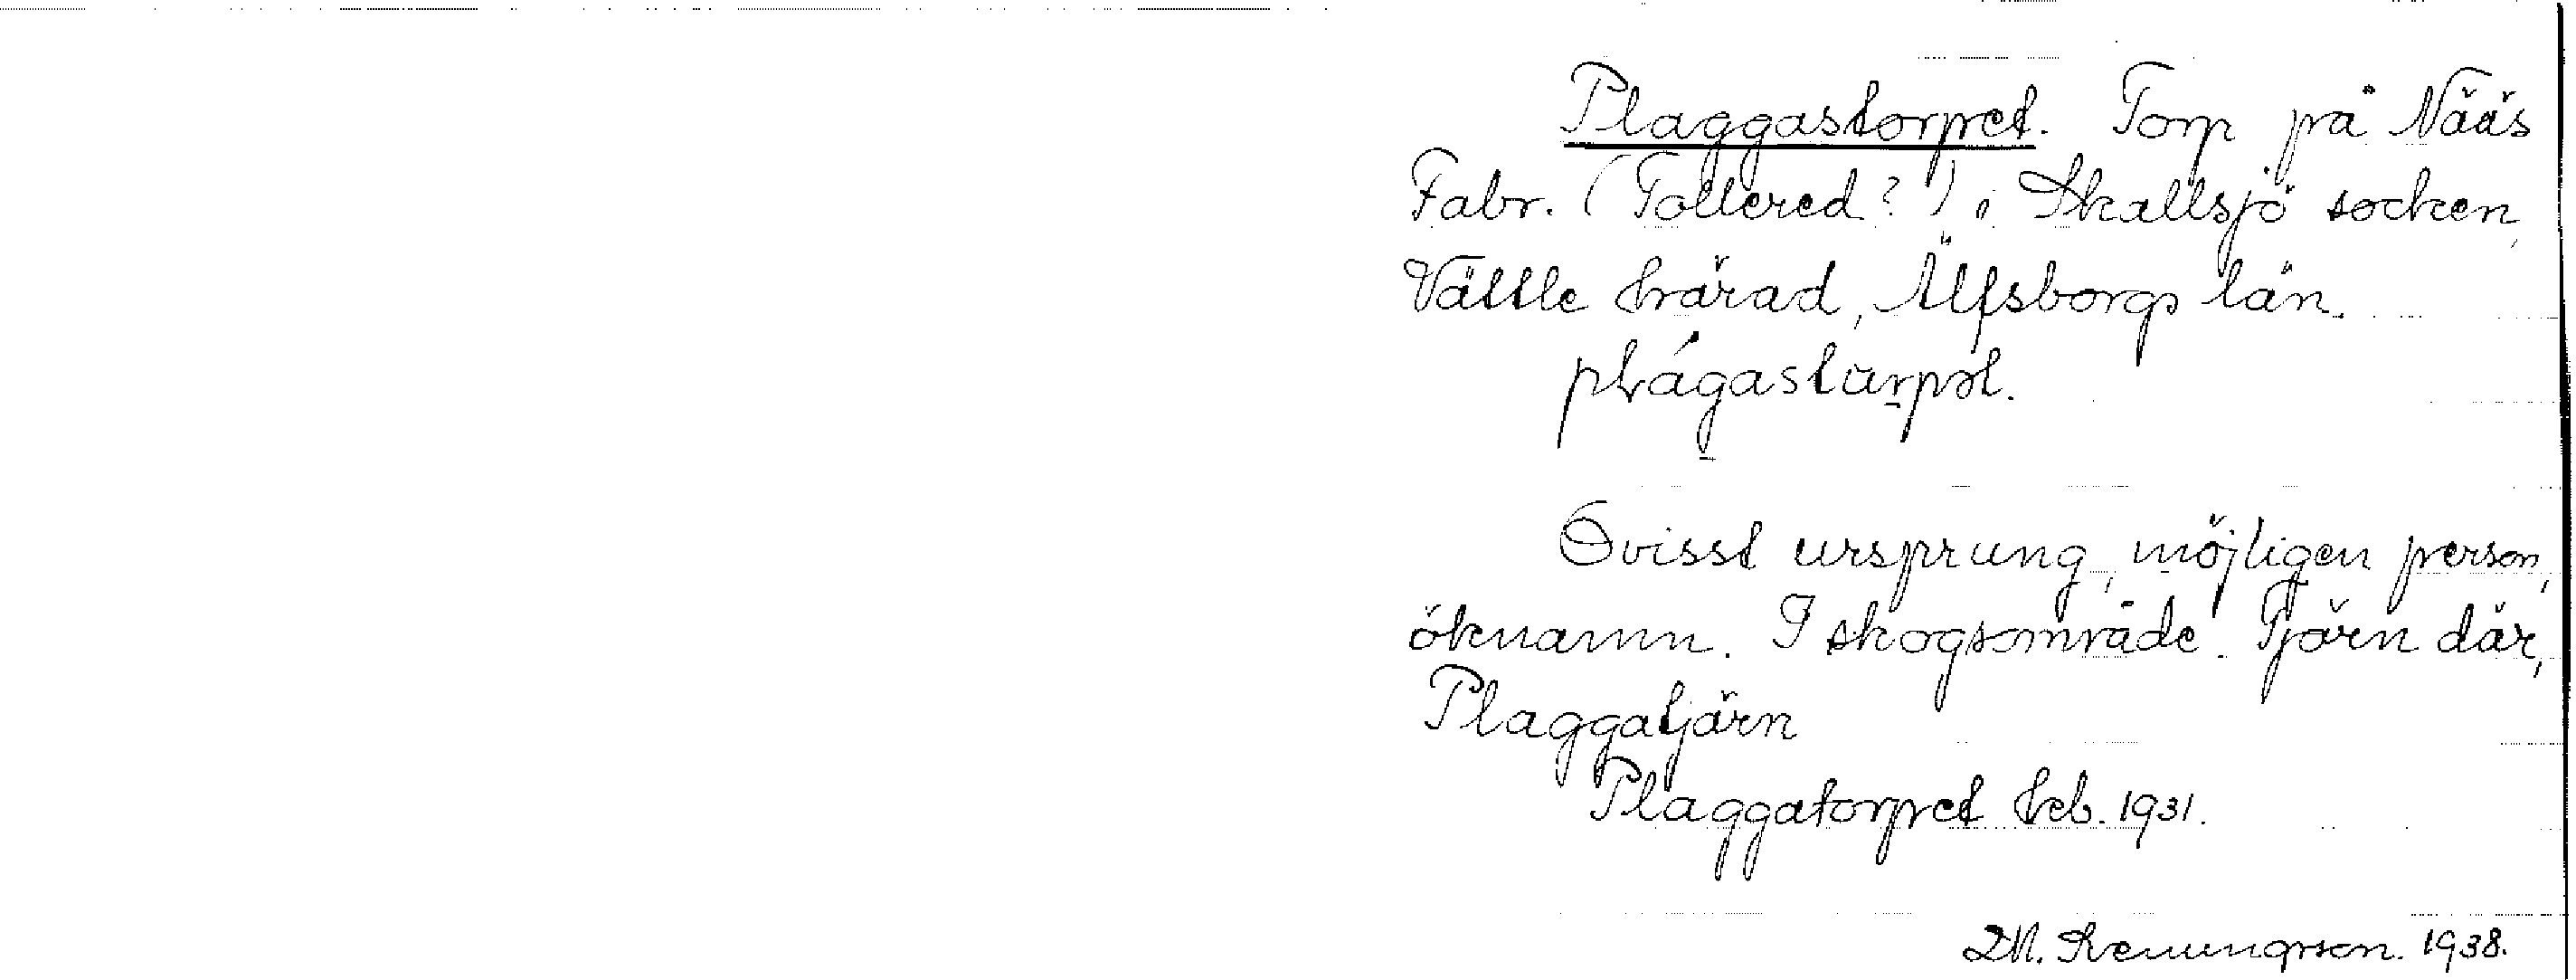 Plaggastorpet. Torp på Nääs
Fabr. (Tollered?) i Skallsjö socken,
Vättle härad, Älfsborgs län.
Ovisst ursprung, möjligen person,
öknamn. I skogsområde. Tjärn där,
Plaggatjärn
Plaggatorpet Jeb. 1931.
1938.